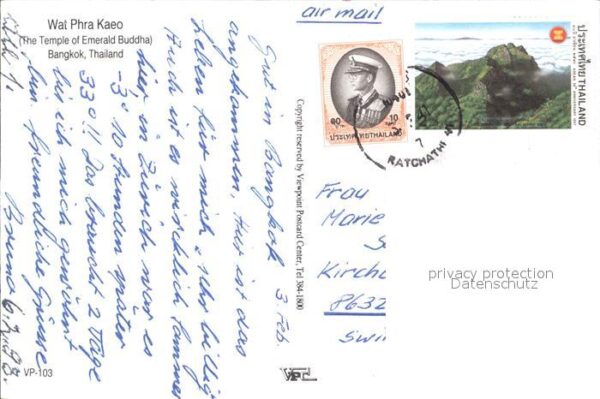 Wat Phra Kaeo
(The Temple of Emerald Buddha)
Bangkok, Thailand
air mail
3 Feb.
Gut in Bangkok
angekommen, Hier ist das
Leben für mich sehr billig
Auch ist es wirklich Sommer
hier, in Zürich war es
-3° 10 Stunden später
33°!! Das braucht 2 Tage
bis ich mich gewöhnt
bin. Freundliche Grüsse
Bruno
Copyright reserved by Viewpoint Postcard Center, Tel 384-1800
๑๐ 10
ประเทศไทย THAILAND
ประเทศไทย THAILAND
RATCHATHI
7
Frau
Marie
S
Kirch
8632
Swi
privacy protection
Datenschutz
VPC
VP-103